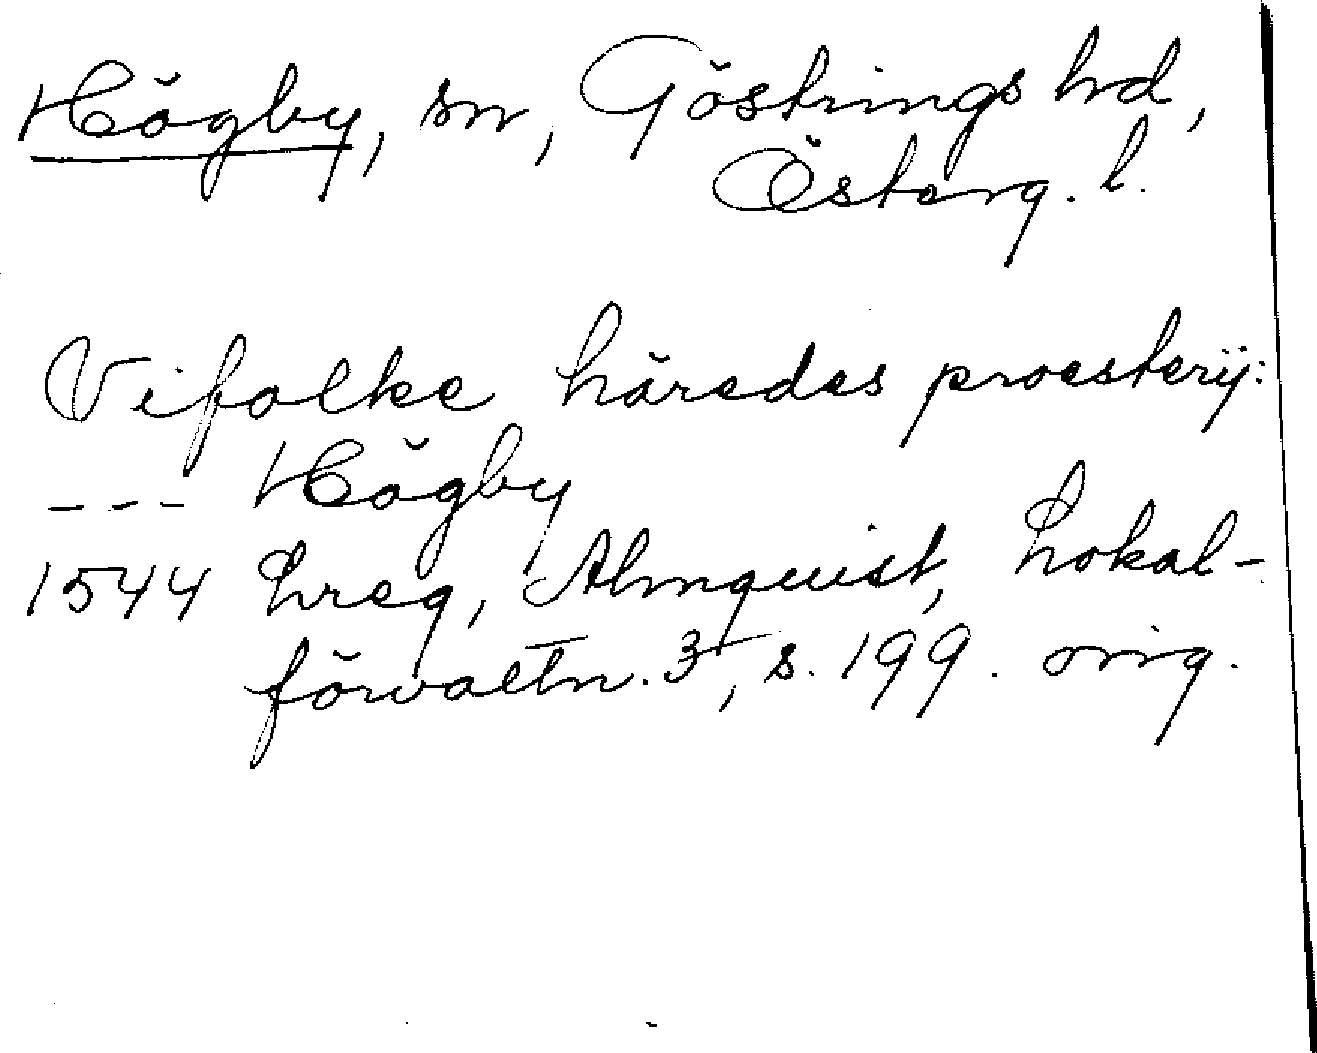 Högby, sn, Göstrings hd,
Österg. l.
Vifolke häredes proesterij:
--- Högby
1544 Lreg, Almquist, Lokal-
förvaltn. 3, s. 199. orig.